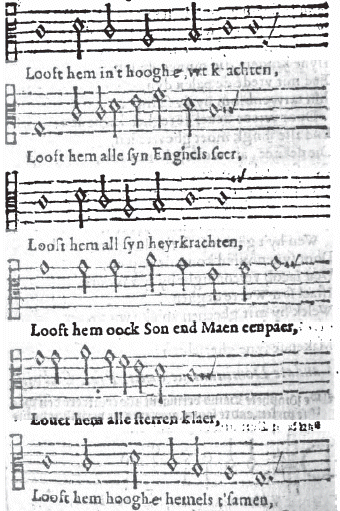 Looft hem in't hooghe, wt k achten,
Looft hem alle syn Enghels seer,
Looft hem all syn heyrkrachten,
Looft hem oock Son end Maen eenpaer,
Louet hem alle sterren klaer,
Looft hem hooghe hemels t'samen,